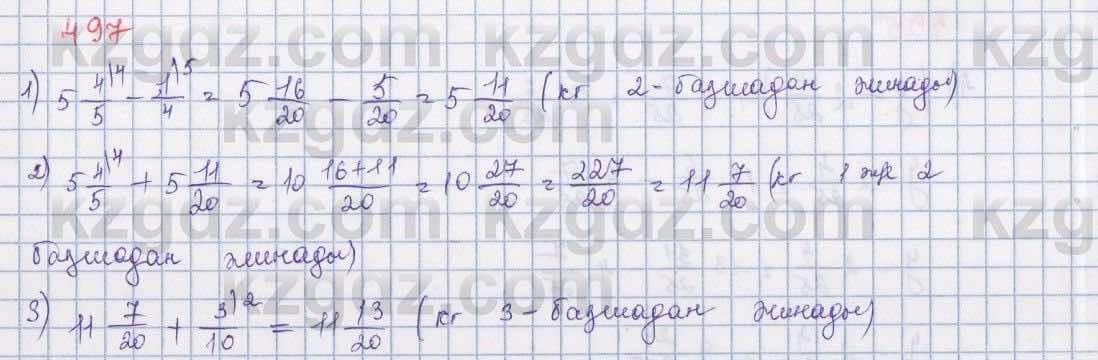 497
1) 5 4/5 \4 - 1/4 \5 = 5 16/20 - 5/20 = 5 11/20 (кг 2-бақшадан жинады)
2) 5 4/5 \4 + 5 11/20 = 10 16+11/20 = 10 27/20 = 227/20 = 11 7/20 (кг 1 және 2
бақшадан жинады)
3) 11 7/20 + 3/10 \2 = 11 13/20 (кг 3-бақшадан жинады)
kzgdz.com